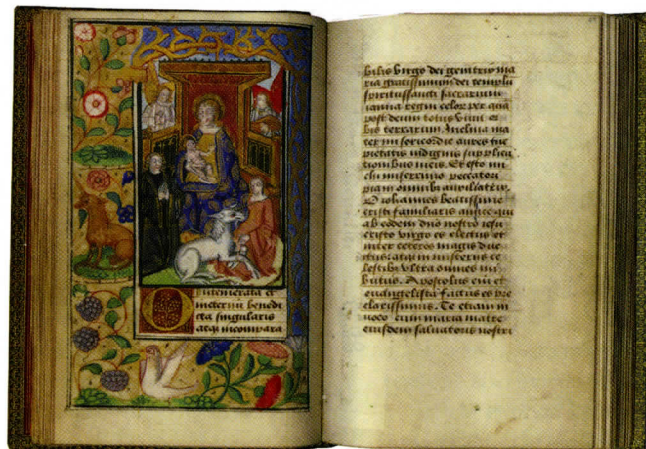 O intemerata et
in eternu benedi
cta singularis
atq; incompara
bilis virgo dei genitrix ma
ria gratissimum dei templu
spiritussancti sacrarium
ianua regni celor per qua
post deum totus vivit or
bis terrarum Inclina ma
ter misericordie aures tue
pietatis indignis supplica
tionibus meis. Et esto mi
chi miserrimo peccatori
pia in omnibus auxiliatrix.
O iohannes beatissime
cristi familiaris amice qui
ab eodem dno nostro iesu
cristo virgo es electus et
inter ceteros magis dile
ctus: atq; in misteriis ce
lestib; ultra omnes im
butus. Apostolus eni et
euangelista factus es pre
clarissimus. Te etiam in
uoco cum maria matre
eiusdem saluatoris nostri